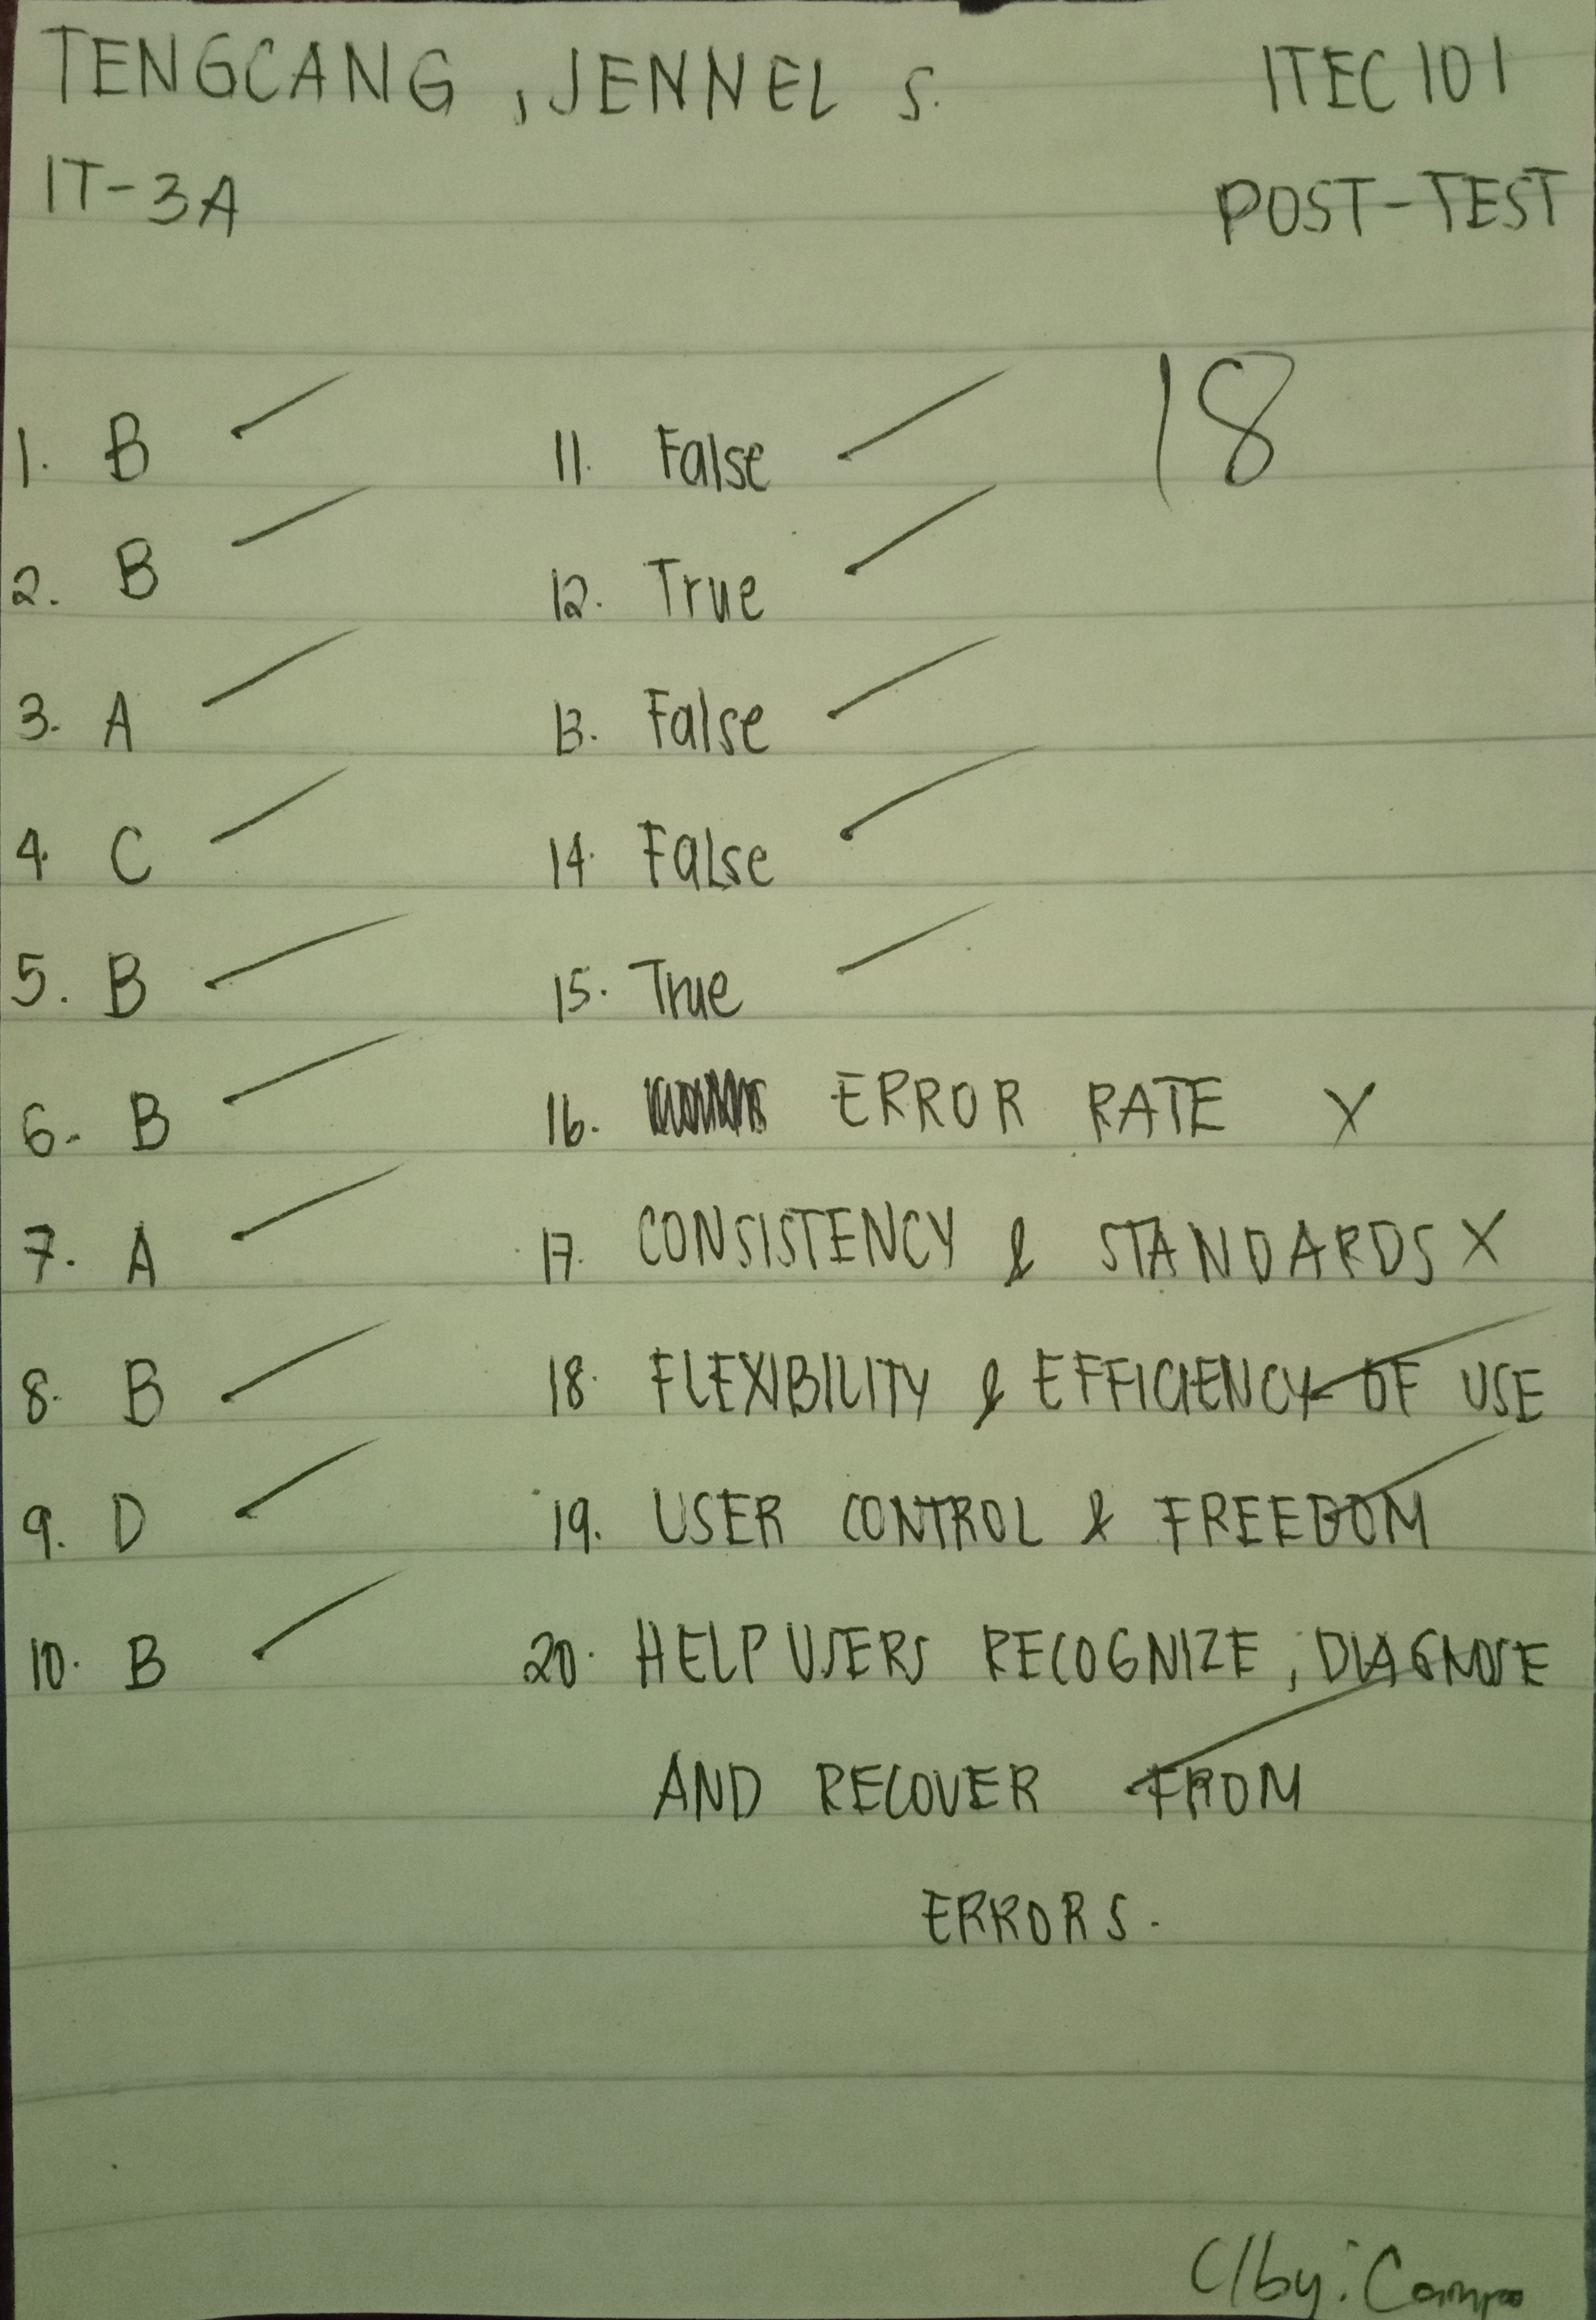 TENGCANG, JENNEL S.
ITEC 101
IT-3A
POST-TEST
18
1. B
2. B
3. A
4. C
5. B
6. B
7. A
8. B
9. D
10. B
11. False
12. True
13. False
14. False
15. True
16. ERROR RATE X
17. CONSISTENCY & STANDARDS X
18. FLEXIBILITY & EFFICIENCY OF USE
19. USER CONTROL & FREEDOM
20. HELP USERS RECOGNIZE, DIAGNOSE
AND RECOVER FROM
ERRORS.
C/by: